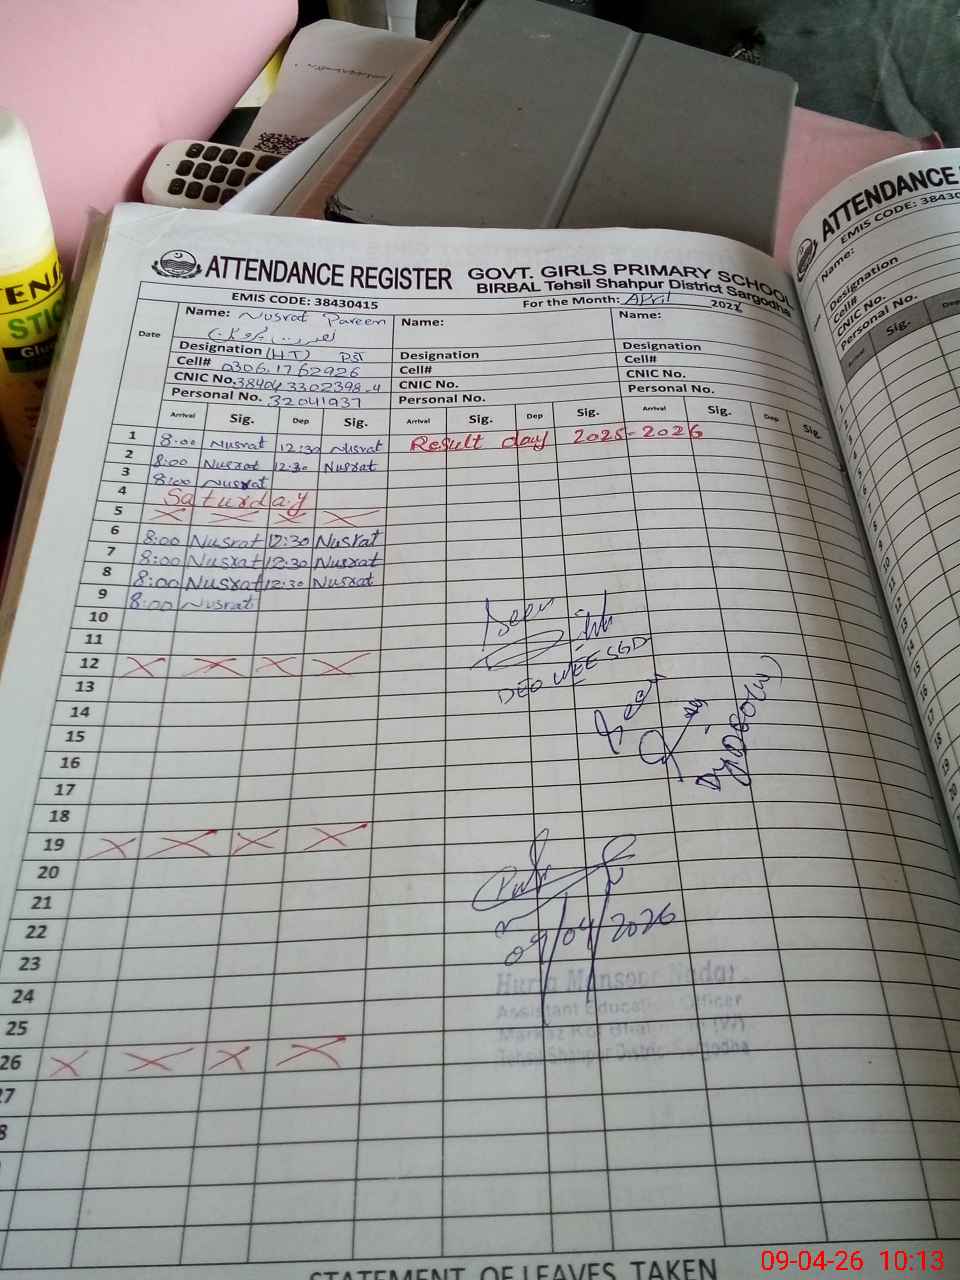 ATTENDANCE REGISTER GOVT. GIRLS PRIMARY SCHOOL
BIRBAL Tehsil Shahpur District Sargodha
EMIS CODE: 38430415 For the Month: April 202
Date Name: Nusrat Parveen Name: Name:
Designation (H.T) PST Designation Designation
Cell# 0306.1762926 Cell# Cell#
CNIC No. 38404 3302398-4 CNIC No. CNIC No.
Personal No. 32041937 Personal No. Personal No.
Arrival Sig. Dep Sig. Arrival Sig. Dep Sig. Arrival Sig. Dep Sig.
1 8:00 Nusrat 12:30 Nusrat Result day 2025-2026
2 8:00 Nusrat 12:30 Nusrat
3 8:00 Nusrat
4 Saturday
5
6 8:00 Nusrat 12:30 Nusrat
7 8:00 Nusrat 12:30 Nusrat
8 8:00 Nusrat 12:30 Nusrat
9 8:00 Nusrat
10
11
12
13
14
15
16
17
18
19
20
21
22
23
24
25
26
27
8
Seen
DEO WEE SGD
Seen
09/04/2026
Mansoor
Assistant Education Officer
Markaz
Tehsil Shahpur District Sargodha
STATEMENT OF LEAVES TAKEN
ATTENDANCE
EMIS CODE: 38430
Name:
Designation
Cell#
CNIC No.
Personal No.
Arrival Sig. Dep
TENS
STIC
Glue
09-04-26 10:13